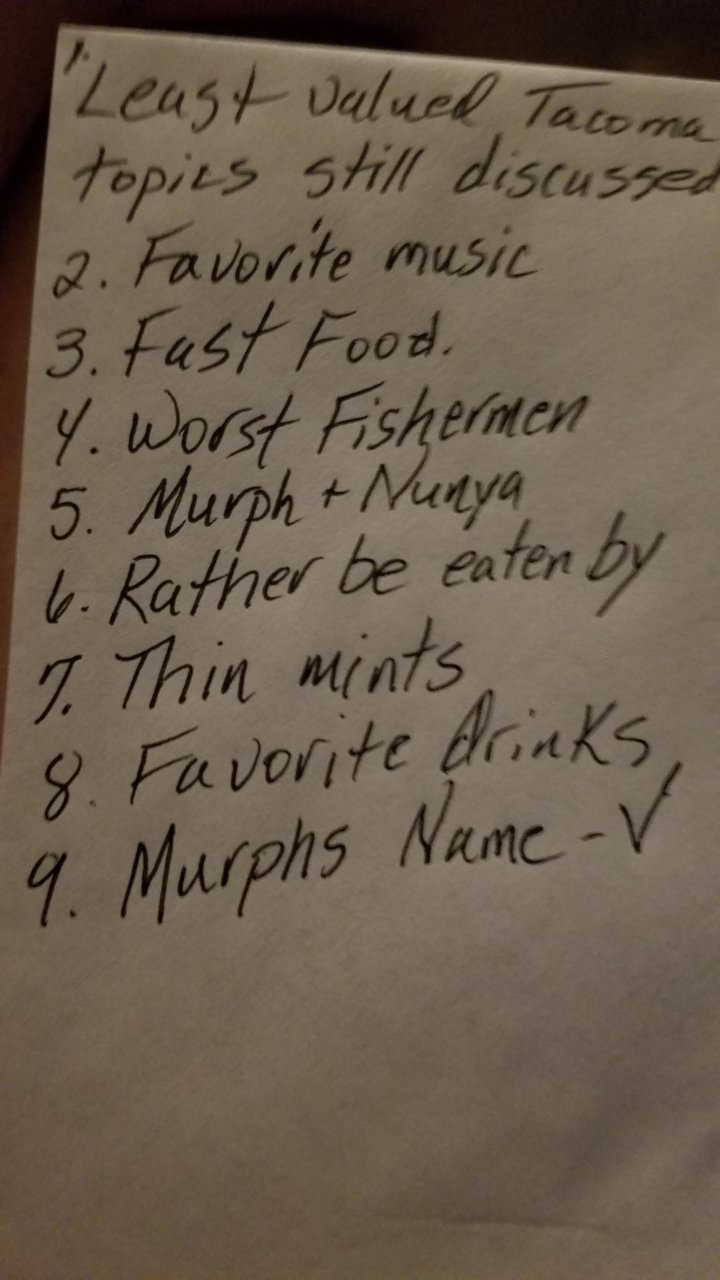 1. Least valued Tacoma
topics still discussed
2. Favorite music
3. Fast Food.
4. Worst Fishermen
5. Murph + Nunya
6. Rather be eaten by
7. Thin mints
8. Favorite drinks
9. Murphs Name - √